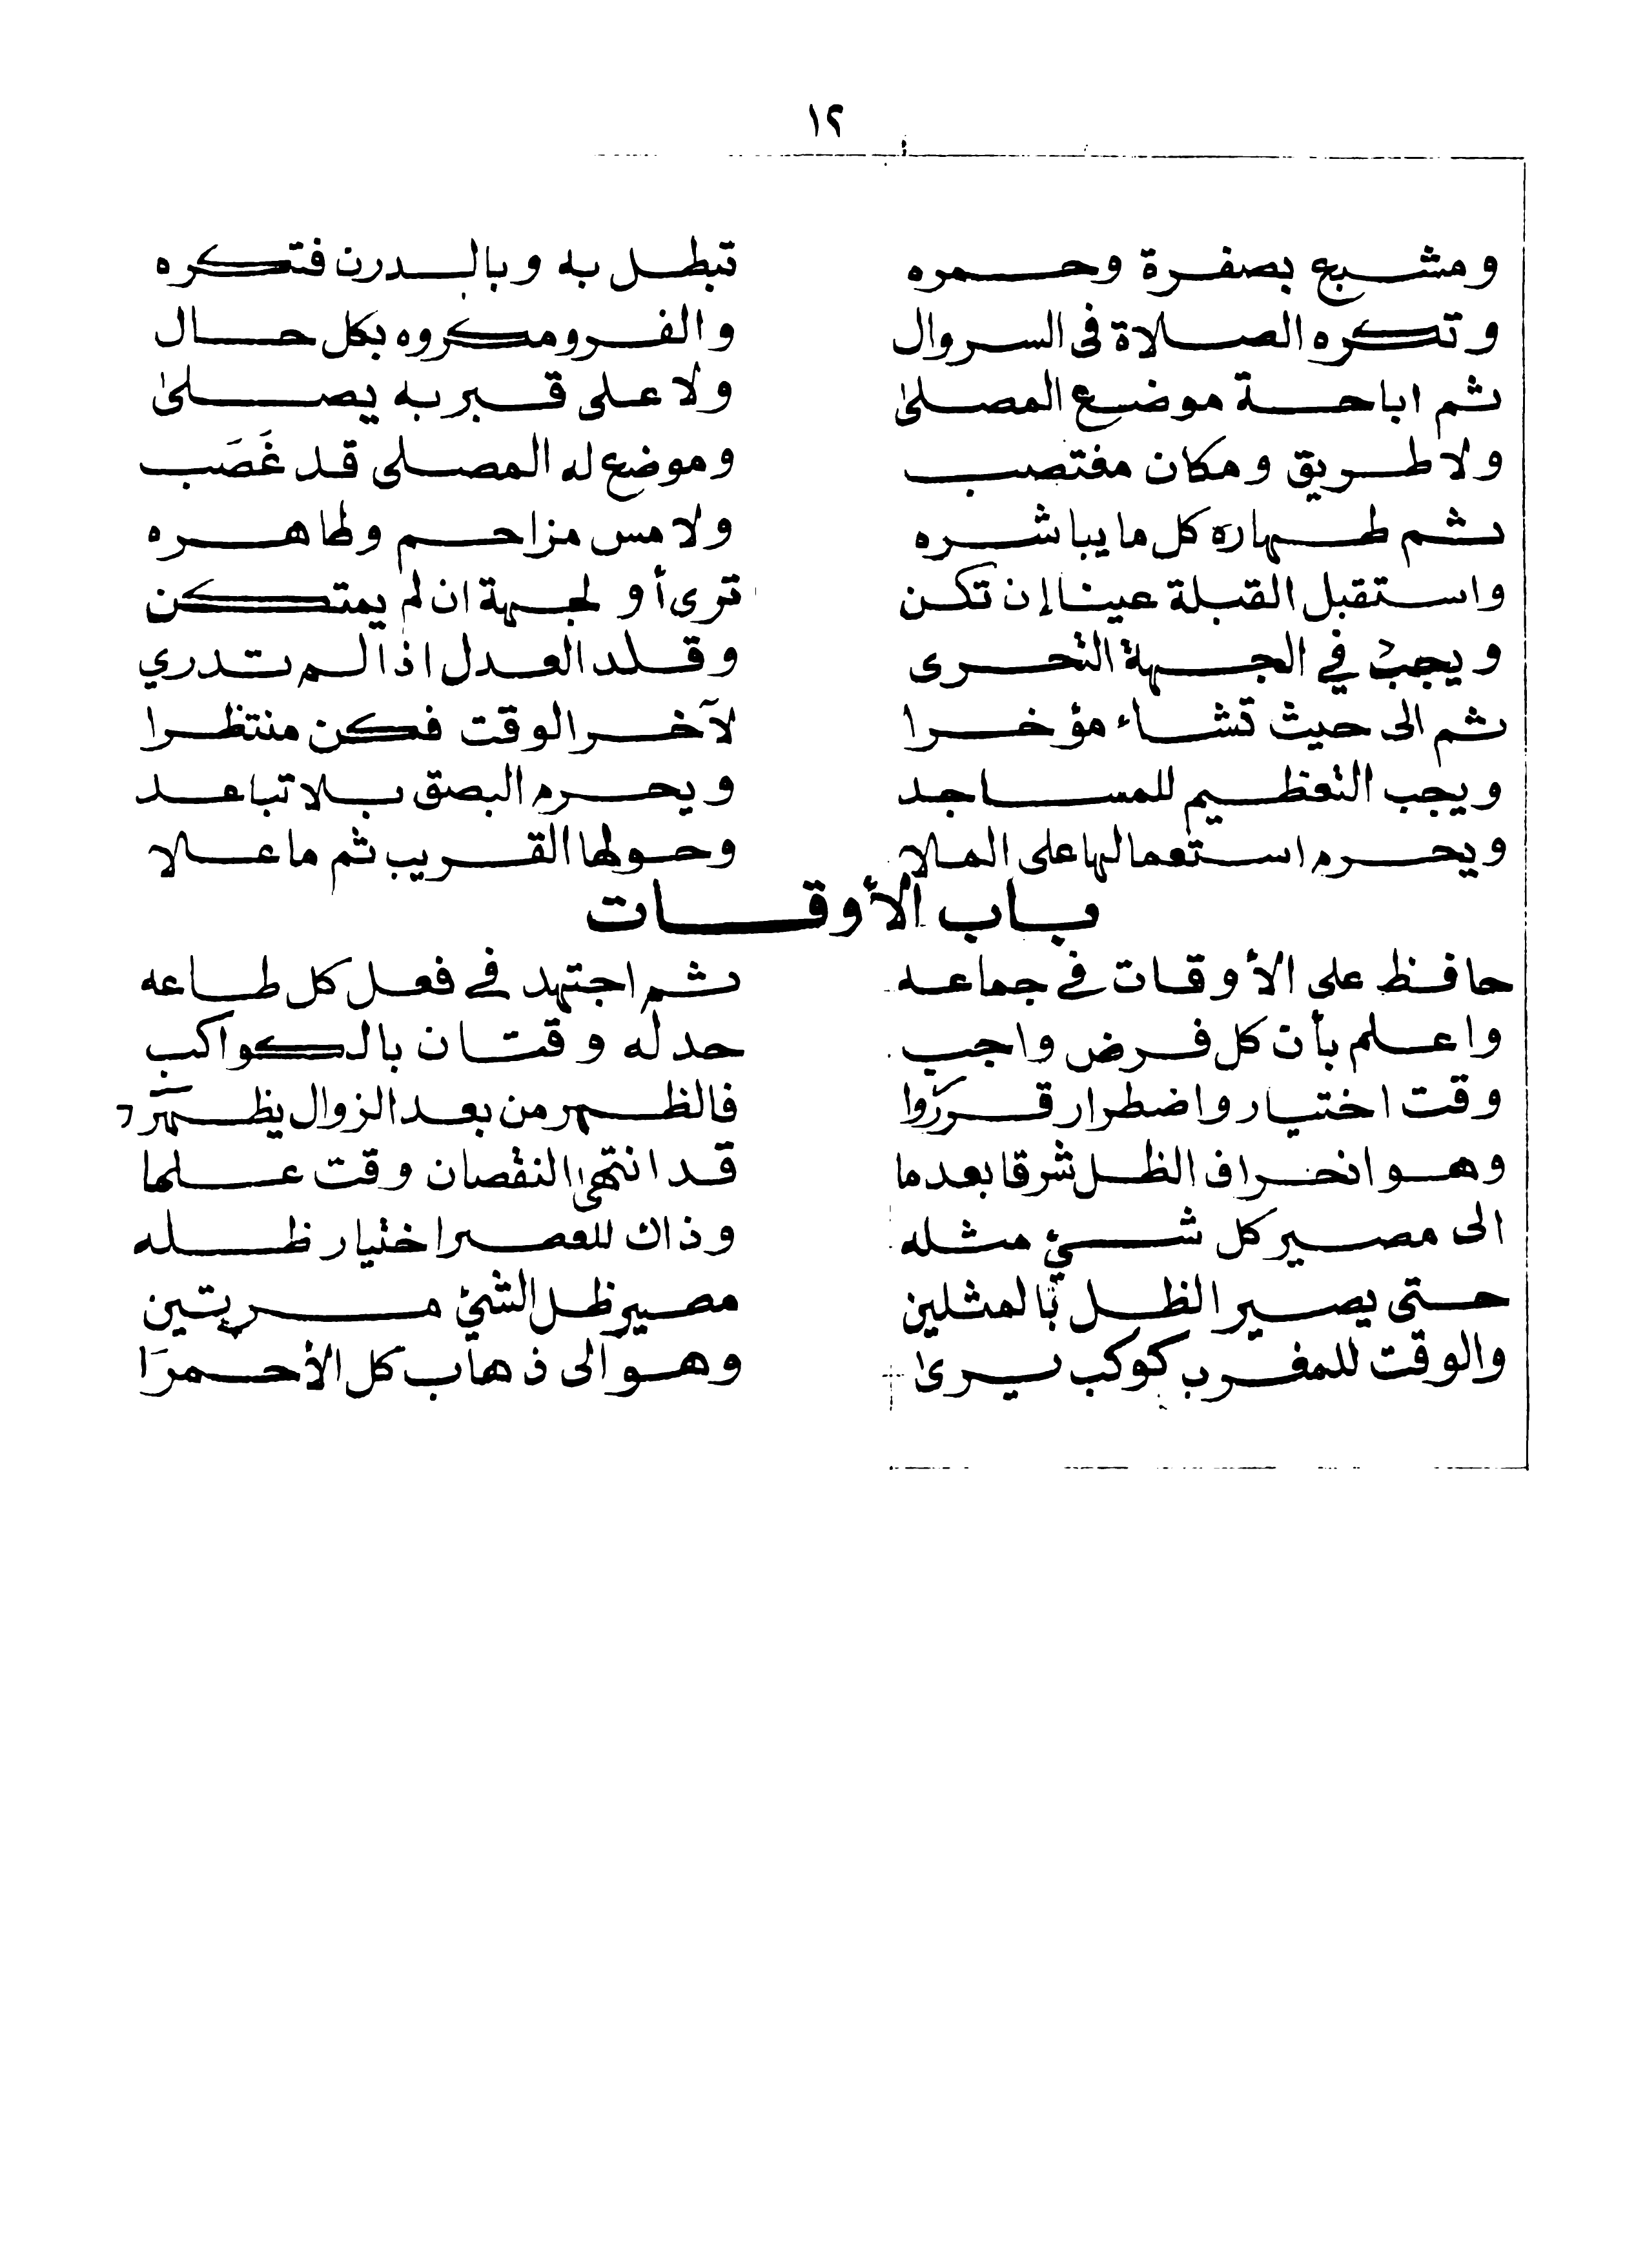 ١٢
ومشبع بصفرة وحمره تبطل به وبالدرن فتكره
وتكره الصلاة فى السروال والفرو مكروه بكل حال
ثم اباحة موضع المصلىٰ ولا على قبر به يصلىٰ
ولا طريق ومكان مغتصب وموضع له المصلى قد غَصَب
ثم طهارة كل ما يباشره ولا مس مزاحم وطاهره
واستقبل القبلة عينا إن تكن ترى أو لجهة ان لم يمتكن
ويجب في الجهة التحرى وقلد العدل اذا لم تدري
ثم الى حيث تشاء مؤخرا لآخر الوقت فكن منتظرا
ويجب التعظيم للمساجد ويحرم البصق بلا تباعد
ويحرم استعمالها على الملا وحولها القريب ثم ما علا
باب الأوقات
حافظ على الأوقات في جماعه ثم اجتهد في فعل كل طاعه
واعلم بأن كل فرض واجب حد له وقتان بالكواكب
وقت اختيار واضطرار قررَوا فالظهر من بعد الزوال يظهَر
وهو انحراف الظل شرقا بعدما قد انتهىٰ النقصان وقت علما
الى مصير كل شيئ مثله وذاك للعصر اختيار ظله
حتى يصير الظل بالمثلين مصير ظل الشيئ مريتين
والوقت للمغرب كوكب يرىٰ وهو الى ذهاب كل الأحمرَا